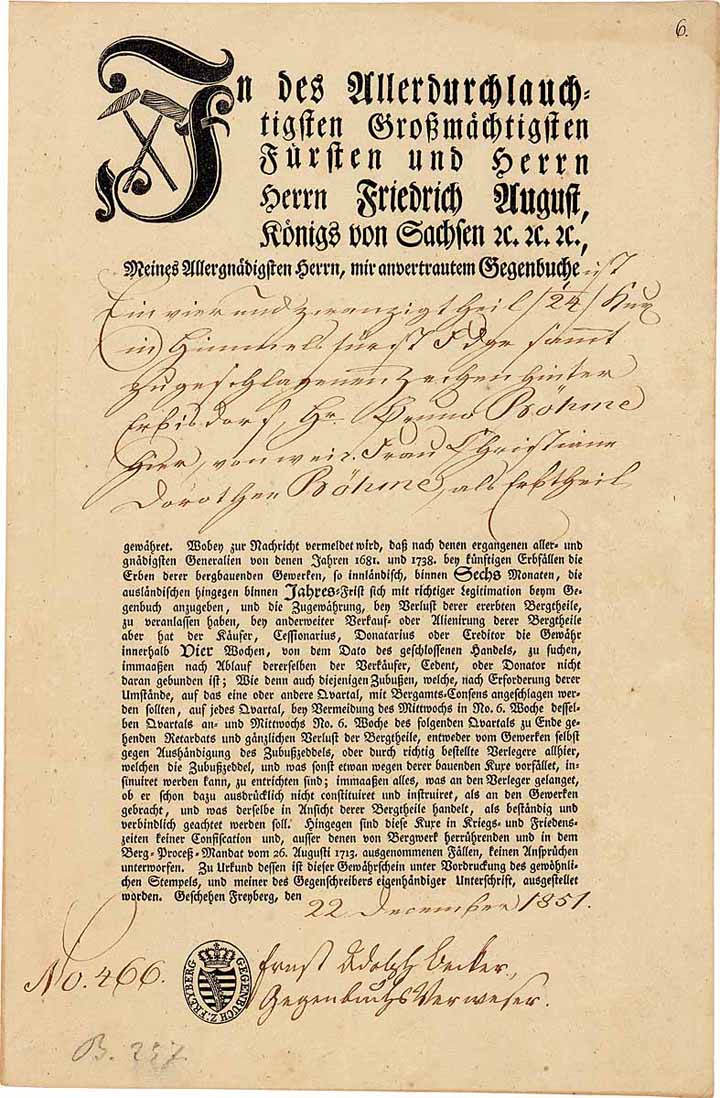 6.
In des Allerdurchlauch-
tigsten Großmächtigsten
Fürsten und Herrn
Herrn Friedrich August,
Königs von Sachsen ꝛc. ꝛc. ꝛc.,
Meines Allergnädigsten Herrn, mir anvertrautem Gegenbuche ist
Ein vier und zwanzigtheil /24/ Kux
in Himmelsfürst Fdgr sammt
zugeschlagenen Zechen hinter
Erbisdorf, Hr. Bruno Böhme
hier, von weil. Frau Christiane
Dorothee Böhme, als Erbtheil
gewähret. Wobey zur Nachricht vermeldet wird, daß nach denen ergangenen aller- und
gnädigsten Generalien von denen Jahren 1681. und 1738. bey künftigen Erbfällen die
Erben derer bergbauenden Gewerken, so innländisch, binnen Sechs Monaten, die
ausländischen hingegen binnen Jahres-Frist sich mit richtiger Legitimation beym Ge-
genbuch anzugeben, und die Zugewährung, bey Verlust derer ererbten Bergtheile,
zu veranlassen haben, bey anderweiter Verkauf- oder Alienirung derer Bergtheile
aber hat der Käufer, Cessionarius, Donatarius oder Creditor die Gewähr
innerhalb Vier Wochen, von dem Dato des geschlossenen Handels, zu suchen,
immaaßen nach Ablauf dererselben der Verkäufer, Cedent, oder Donator nicht
daran gebunden ist; Wie denn auch diejenigen Zubußen, welche, nach Erforderung derer
Umstände, auf das eine oder andere Qvartal, mit Bergamts-Consens angeschlagen wer-
den sollten, auf jedes Qvartal, bey Vermeidung des Mittwochs in No. 6. Woche dessel-
ben Qvartals an- und Mittwochs No. 6. Woche des folgenden Qvartals zu Ende ge-
henden Retardats und gänzlichen Verlust der Bergtheile, entweder vom Gewerken selbst
gegen Aushändigung des Zubußzeddels, oder durch richtig bestellte Verlegere allhier,
welchen die Zubußzeddel, und was sonst etwan wegen derer bauenden Kuxe vorfället, in-
sinuiret werden kann, zu entrichten sind; immaaßen alles, was an den Verleger gelanget,
ob er schon dazu ausdrücklich nicht constituiret und instruiret, als an den Gewerken
gebracht, und was derselbe in Ansicht derer Bergtheile handelt, als beständig und
verbindlich geachtet werden soll. Hingegen sind diese Kuxe in Kriegs- und Friedens-
zeiten keiner Confiscation und, ausser denen von Bergwerk herrührenden und in dem
Berg-Proceß-Mandat vom 26. Augusti 1713. ausgenommenen Fällen, keinen Ansprüchen
unterworfen. Zu Urkund dessen ist dieser Gewährschein unter Vordruckung des gewöhnli-
chen Stempels, und meiner des Gegenschreibers eigenhändiger Unterschrift, ausgestellet
worden. Geschehen Freyberg, den
22. December 1851.
No. 466.
GEGENBUCH Z. FREYBERG
Ernst Adolph Becker,
Gegenbuchs Verweser.
B. 237.